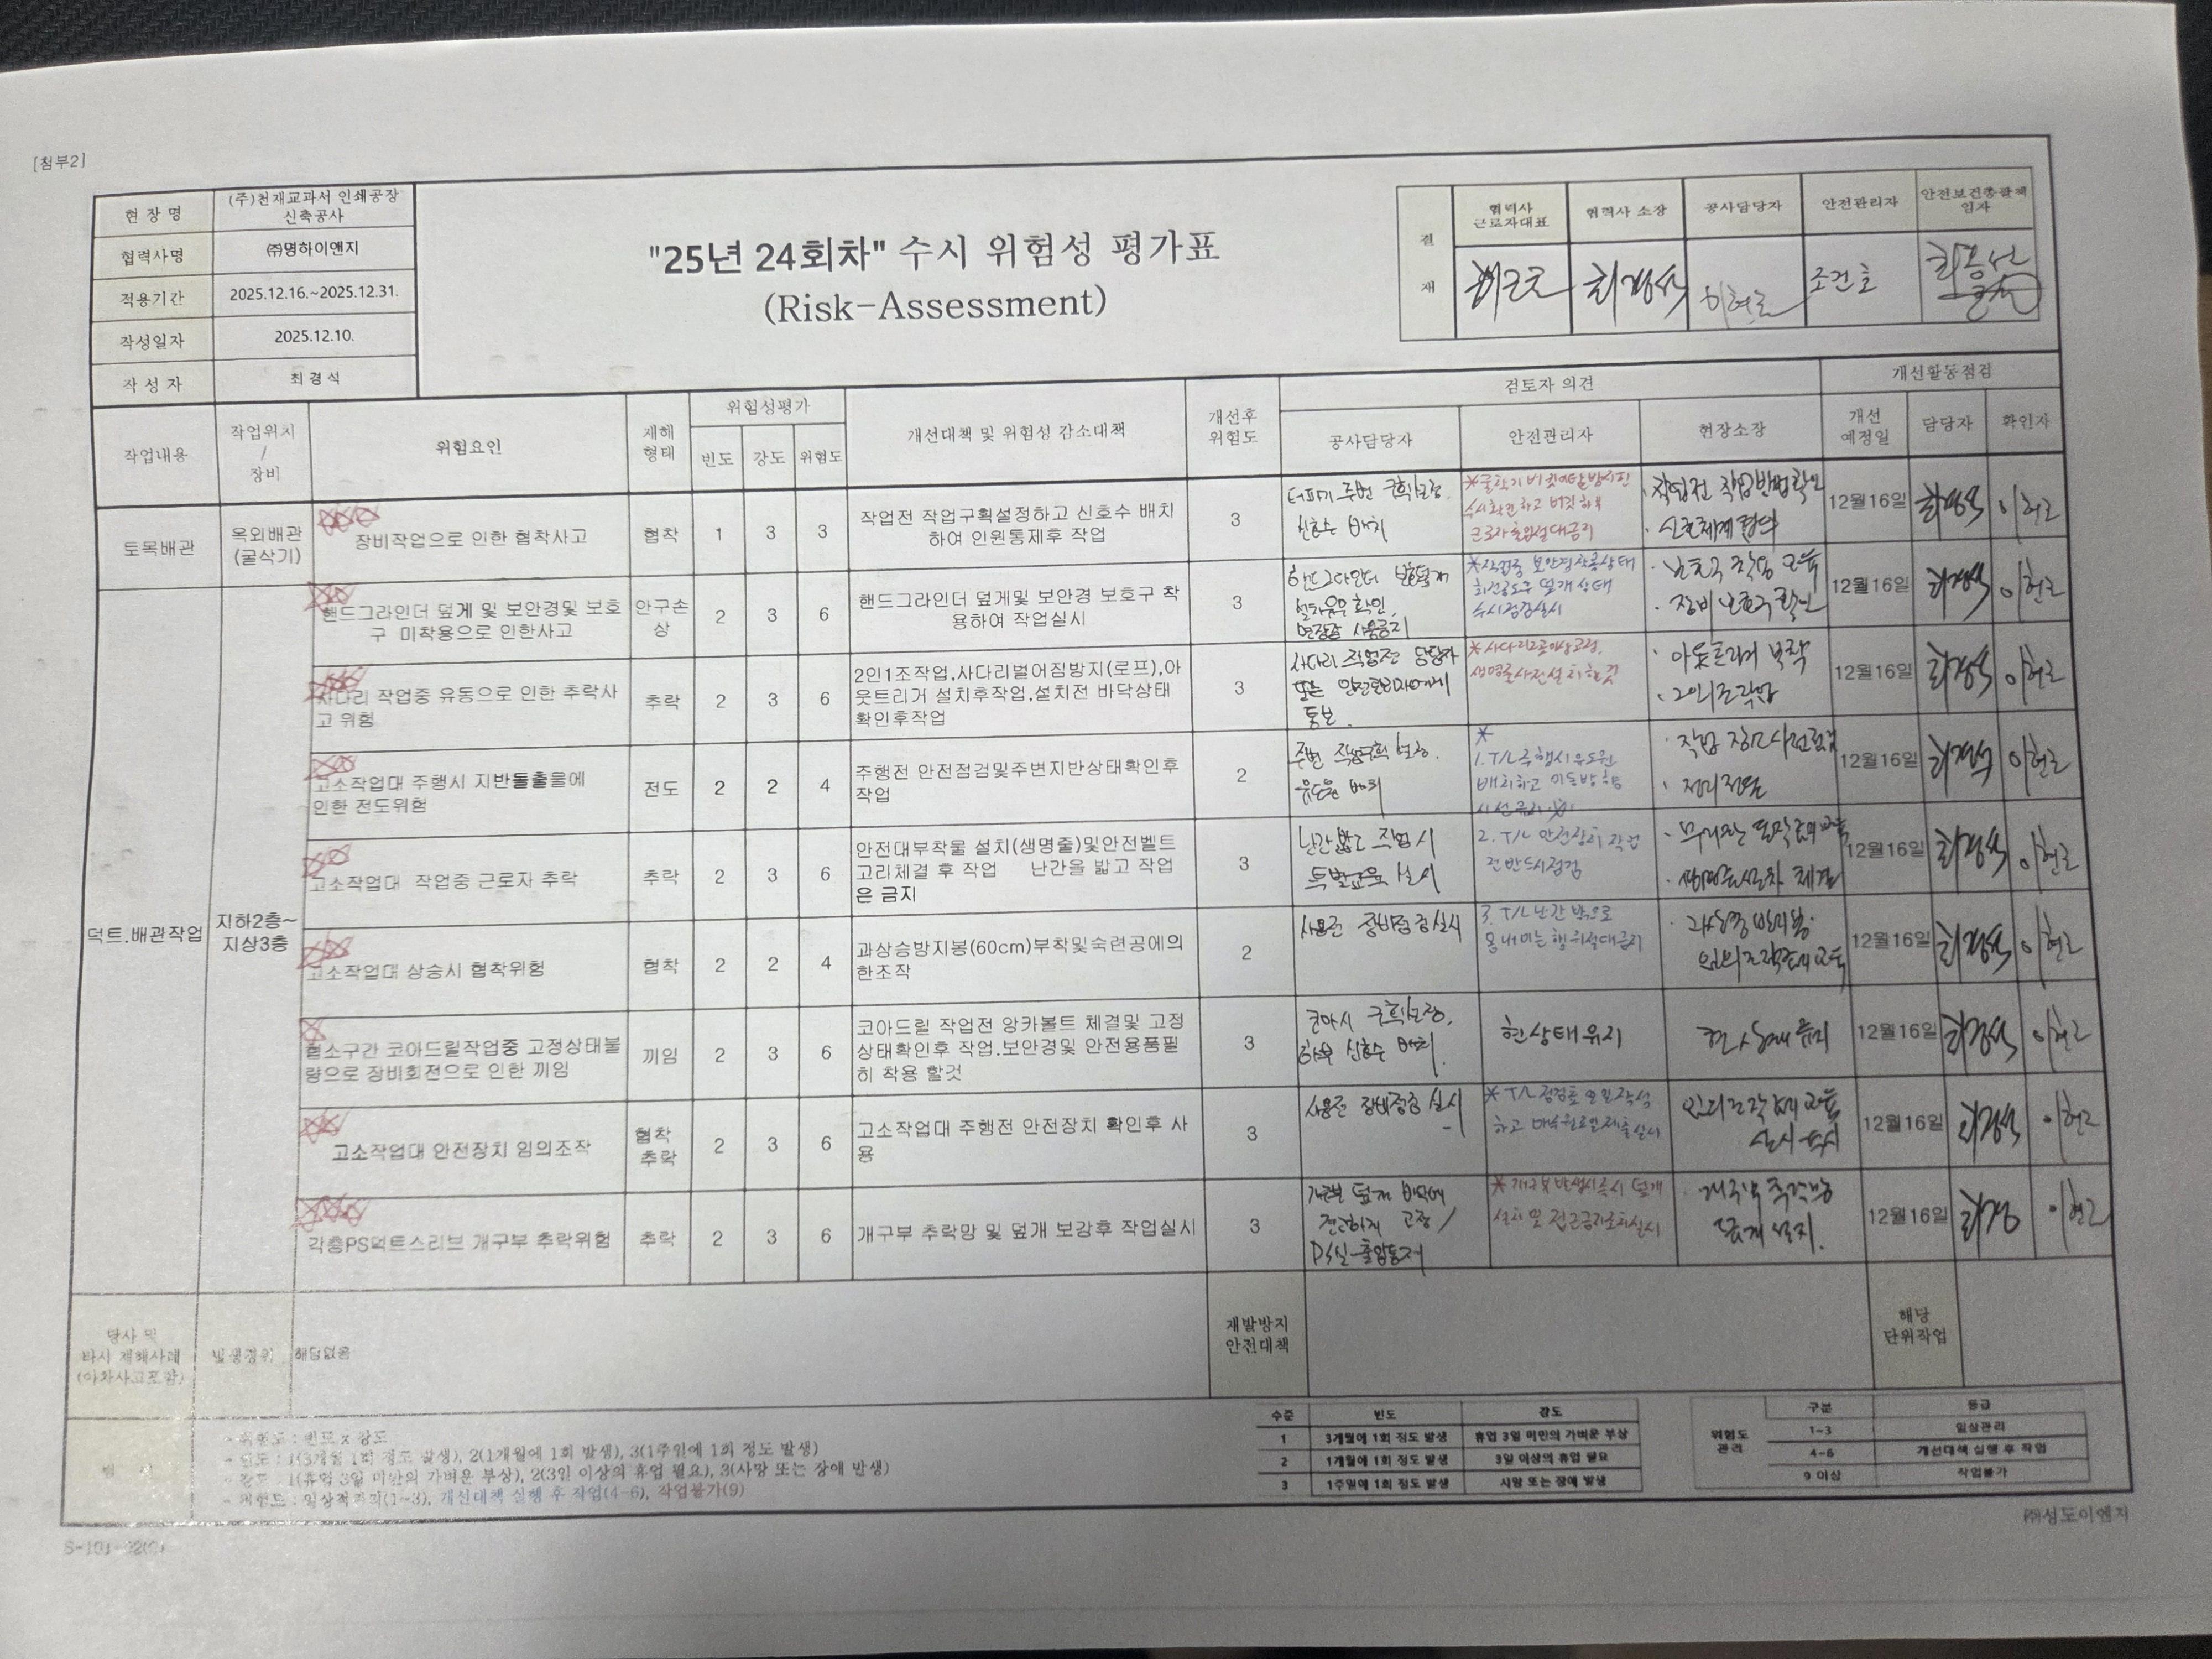 [첨부2]
현 장 명
(주)천재교과서 인쇄공장
신축공사
협력사명
㈜명하이앤지
적용기간
2025.12.16.~2025.12.31.
작성일자
2025.12.10.
작 성 자
최 경 석
"25년 24회차" 수시 위험성 평가표
(Risk-Assessment)
결
재
협력사
근로자대표
협력사 소장
공사담당자
안전관리자
안전보건총괄책
임자
최경석
이현로
조건호
작업내용
작업위치
/
장비
위험요인
재해
형태
위험성평가
빈도
강도
위험도
개선대책 및 위험성 감소대책
개선후
위험도
검토자 의견
공사담당자
안전관리자
현장소장
개선활동점검
개선
예정일
담당자
확인자
토목배관
옥외배관
(굴삭기)
장비작업으로 인한 협착사고
협착
1
3
3
작업전 작업구획설정하고 신호수 배치
하여 인원통제후 작업
3
터파기 주변 구획설정,
신호수 배치
*굴착기 버킷이탈방지핀
수시확인하고 버킷하부
근로자출입절대금지
· 작업전 작업방법확인
· 신호체계 협의
12월16일
최경석
이현로
덕트.배관작업
지하2층~
지상3층
핸드그라인더 덮게 및 보안경및 보호
구 미착용으로 인한사고
안구손
상
2
3
6
핸드그라인더 덮게및 보안경 보호구 착
용하여 작업실시
3
핸드그라인더 보호덮개
설치유무 확인,
사용금지
*작업중 보안경착용상태
덮개상태
수시점검실시
· 보호구 착용 교육
· 장비 보호구 확인
12월16일
최경석
이현로
사다리 작업중 유동으로 인한 추락사
고 위험
추락
2
3
6
2인1조작업,사다리벌어짐방지(로프),아
웃트리거 설치후작업,설치전 바닥상태
확인후작업
3
사다리 작업전 담당자
또는 안전관리자에게
통보.
*사다리2공이상고정,
생명줄사전설치할것
· 아웃트리거 부착
· 2인1조작업
12월16일
최경석
이현로
고소작업대 주행시 지반돌출물에
인한 전도위험
전도
2
2
4
주행전 안전점검및주변지반상태확인후
작업
2
주변 작업구획 설정,
유도원 배치
*
1. T/L주행시유도원
배치하고 이동방향
시선
· 작업 장소사전점검
· 정리정돈
12월16일
최경석
이현로
고소작업대 작업중 근로자 추락
추락
2
3
6
안전대부착물 설치(생명줄)및안전벨트
고리체결 후 작업 난간을 밟고 작업
은 금지
3
난간밟고 작업시
특별교육 실시
2. T/L 안전장치 작업
전반드시점검
· 무리한
체결
12월16일
최경석
이현로
고소작업대 상승시 협착위험
협착
2
2
4
과상승방지봉(60cm)부착및숙련공에의
한조작
2
사용전 장비점검실시
3. T/L난간 밖으로
몸내미는행위절대금지
· 과상승방지봉
임의조작금지교육
12월16일
최경석
이현로
협소구간 코아드릴작업중 고정상태불
량으로 장비회전으로 인한 끼임
끼임
2
3
6
코아드릴 작업전 앙카볼트 체결및 고정
상태확인후 작업.보안경및 안전용품필
히 착용 할것
3
코아시 구획설정,
하부 신호수 배치.
현상태유지
현상태 유지
12월16일
최경석
이현로
고소작업대 안전장치 임의조작
협착
추락
2
3
6
고소작업대 주행전 안전장치 확인후 사
용
3
사용전 장비점검 실시
*T/L점검표 일일작성
하고
임의조작금지 교육
실시
12월16일
최경석
이현로
각층PS덕트스리브 개구부 추락위험
추락
2
3
6
개구부 추락망 및 덮개 보강후 작업실시
3
개구부 덮개 바닥에
견고하게 고정/
PS실 출입통제
*개구부발생시즉시덮개
설치 및 접근금지조치실시
· 개구부 추락망
덮개 설치.
12월16일
최경
이현로
당사 및
타사 재해사례
(아차사고포함)
발생경위
해당없음
재발방지
안전대책
해당
단위작업
- 위험도 : 빈도 x 강도
- 빈도 : 1(3개월 1회 정도 발생), 2(1개월에 1회 발생), 3(1주일에 1회 정도 발생)
- 강도 : 1(휴업 3일 미만의 가벼운 부상), 2(3일 이상의 휴업 필요), 3(사망 또는 장애 발생)
- 위험도 : 일상적관리(1~3), 개선대책 실행 후 작업(4~6), 작업불가(9)
수준
빈도
강도
1
3개월에 1회 정도 발생
휴업 3일 미만의 가벼운 부상
2
1개월에 1회 정도 발생
3일 이상의 휴업 필요
3
1주일에 1회 정도 발생
사망 또는 장애 발생
위험도
관리
구분
등급
1~3
일상관리
4~6
개선대책 실행 후 작업
9 이상
작업불가
㈜성도이엔지